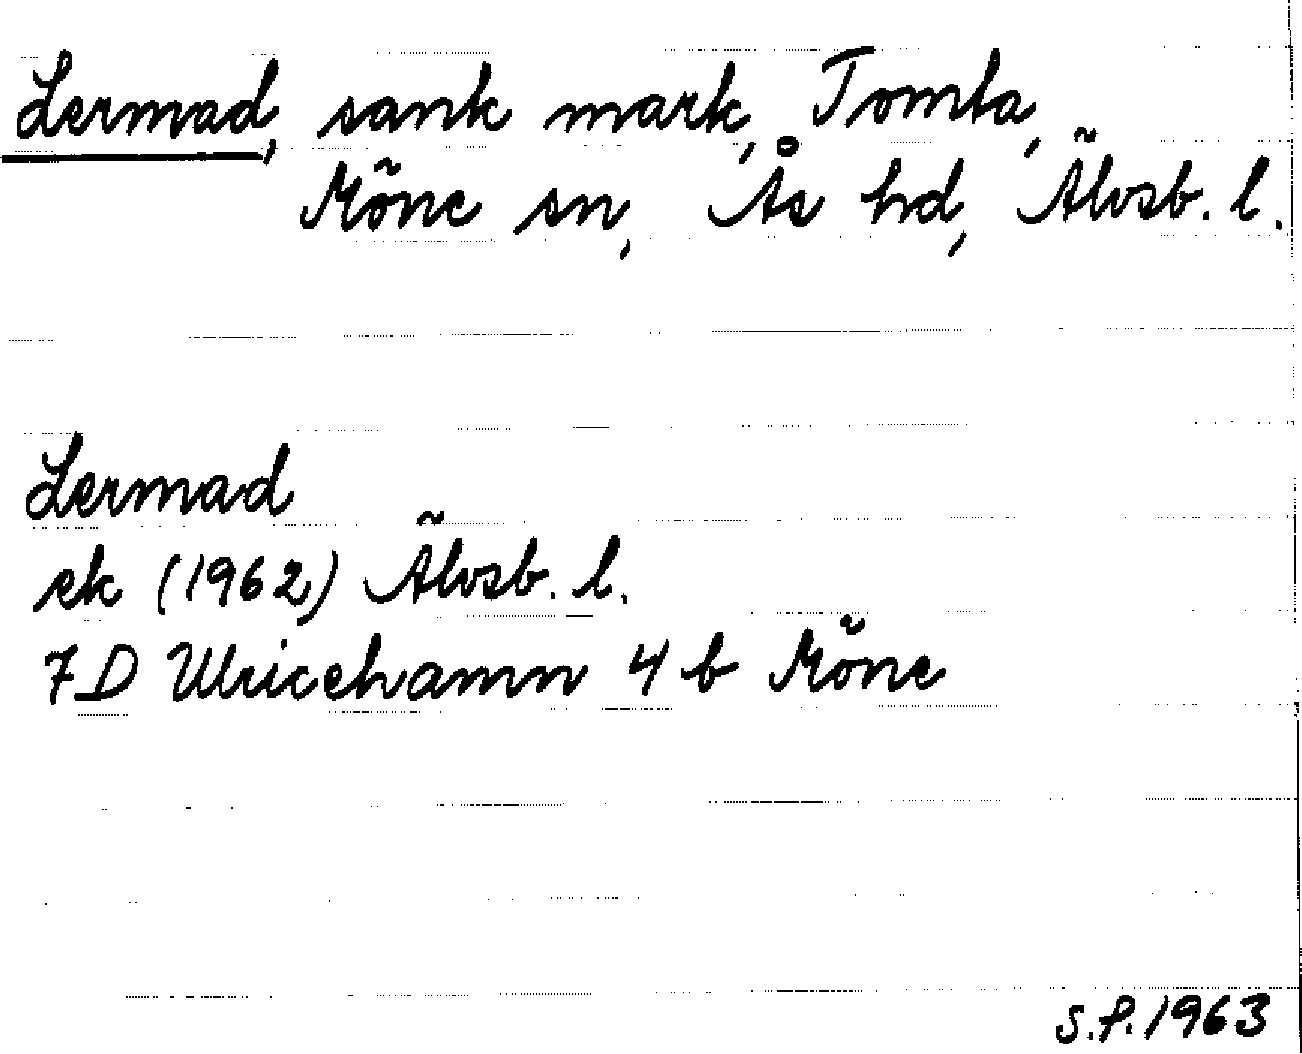 Lermad, sank mark, Tomta,
Möne sn, Ås hd, Älvsb. l.
Lermad
ek (1962) Älvsb. l.
7D Ulricehamn 4 b Möne
S.P. 1963